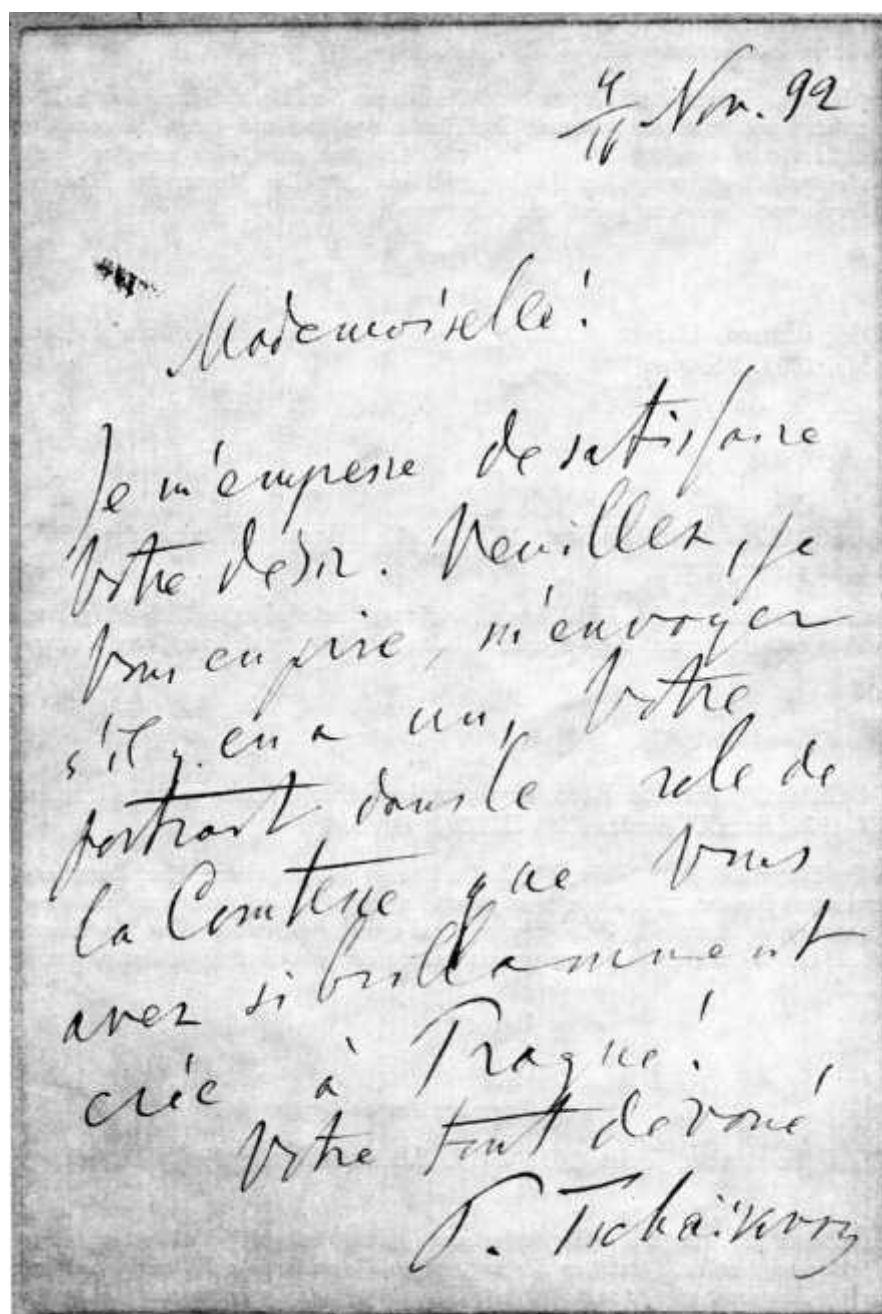 4/16 Nov. 92
Mademoiselle!
Je m'empresse de satisfaire
Votre désir. Veuillez, je
Vous en prie, m'envoyer
s'il y en a un, Votre
portrait dans le role de
la Comtesse que Vous
avez si brillamment
crée à Prague!
Votre tout dévoué
P. Tschaikovsky